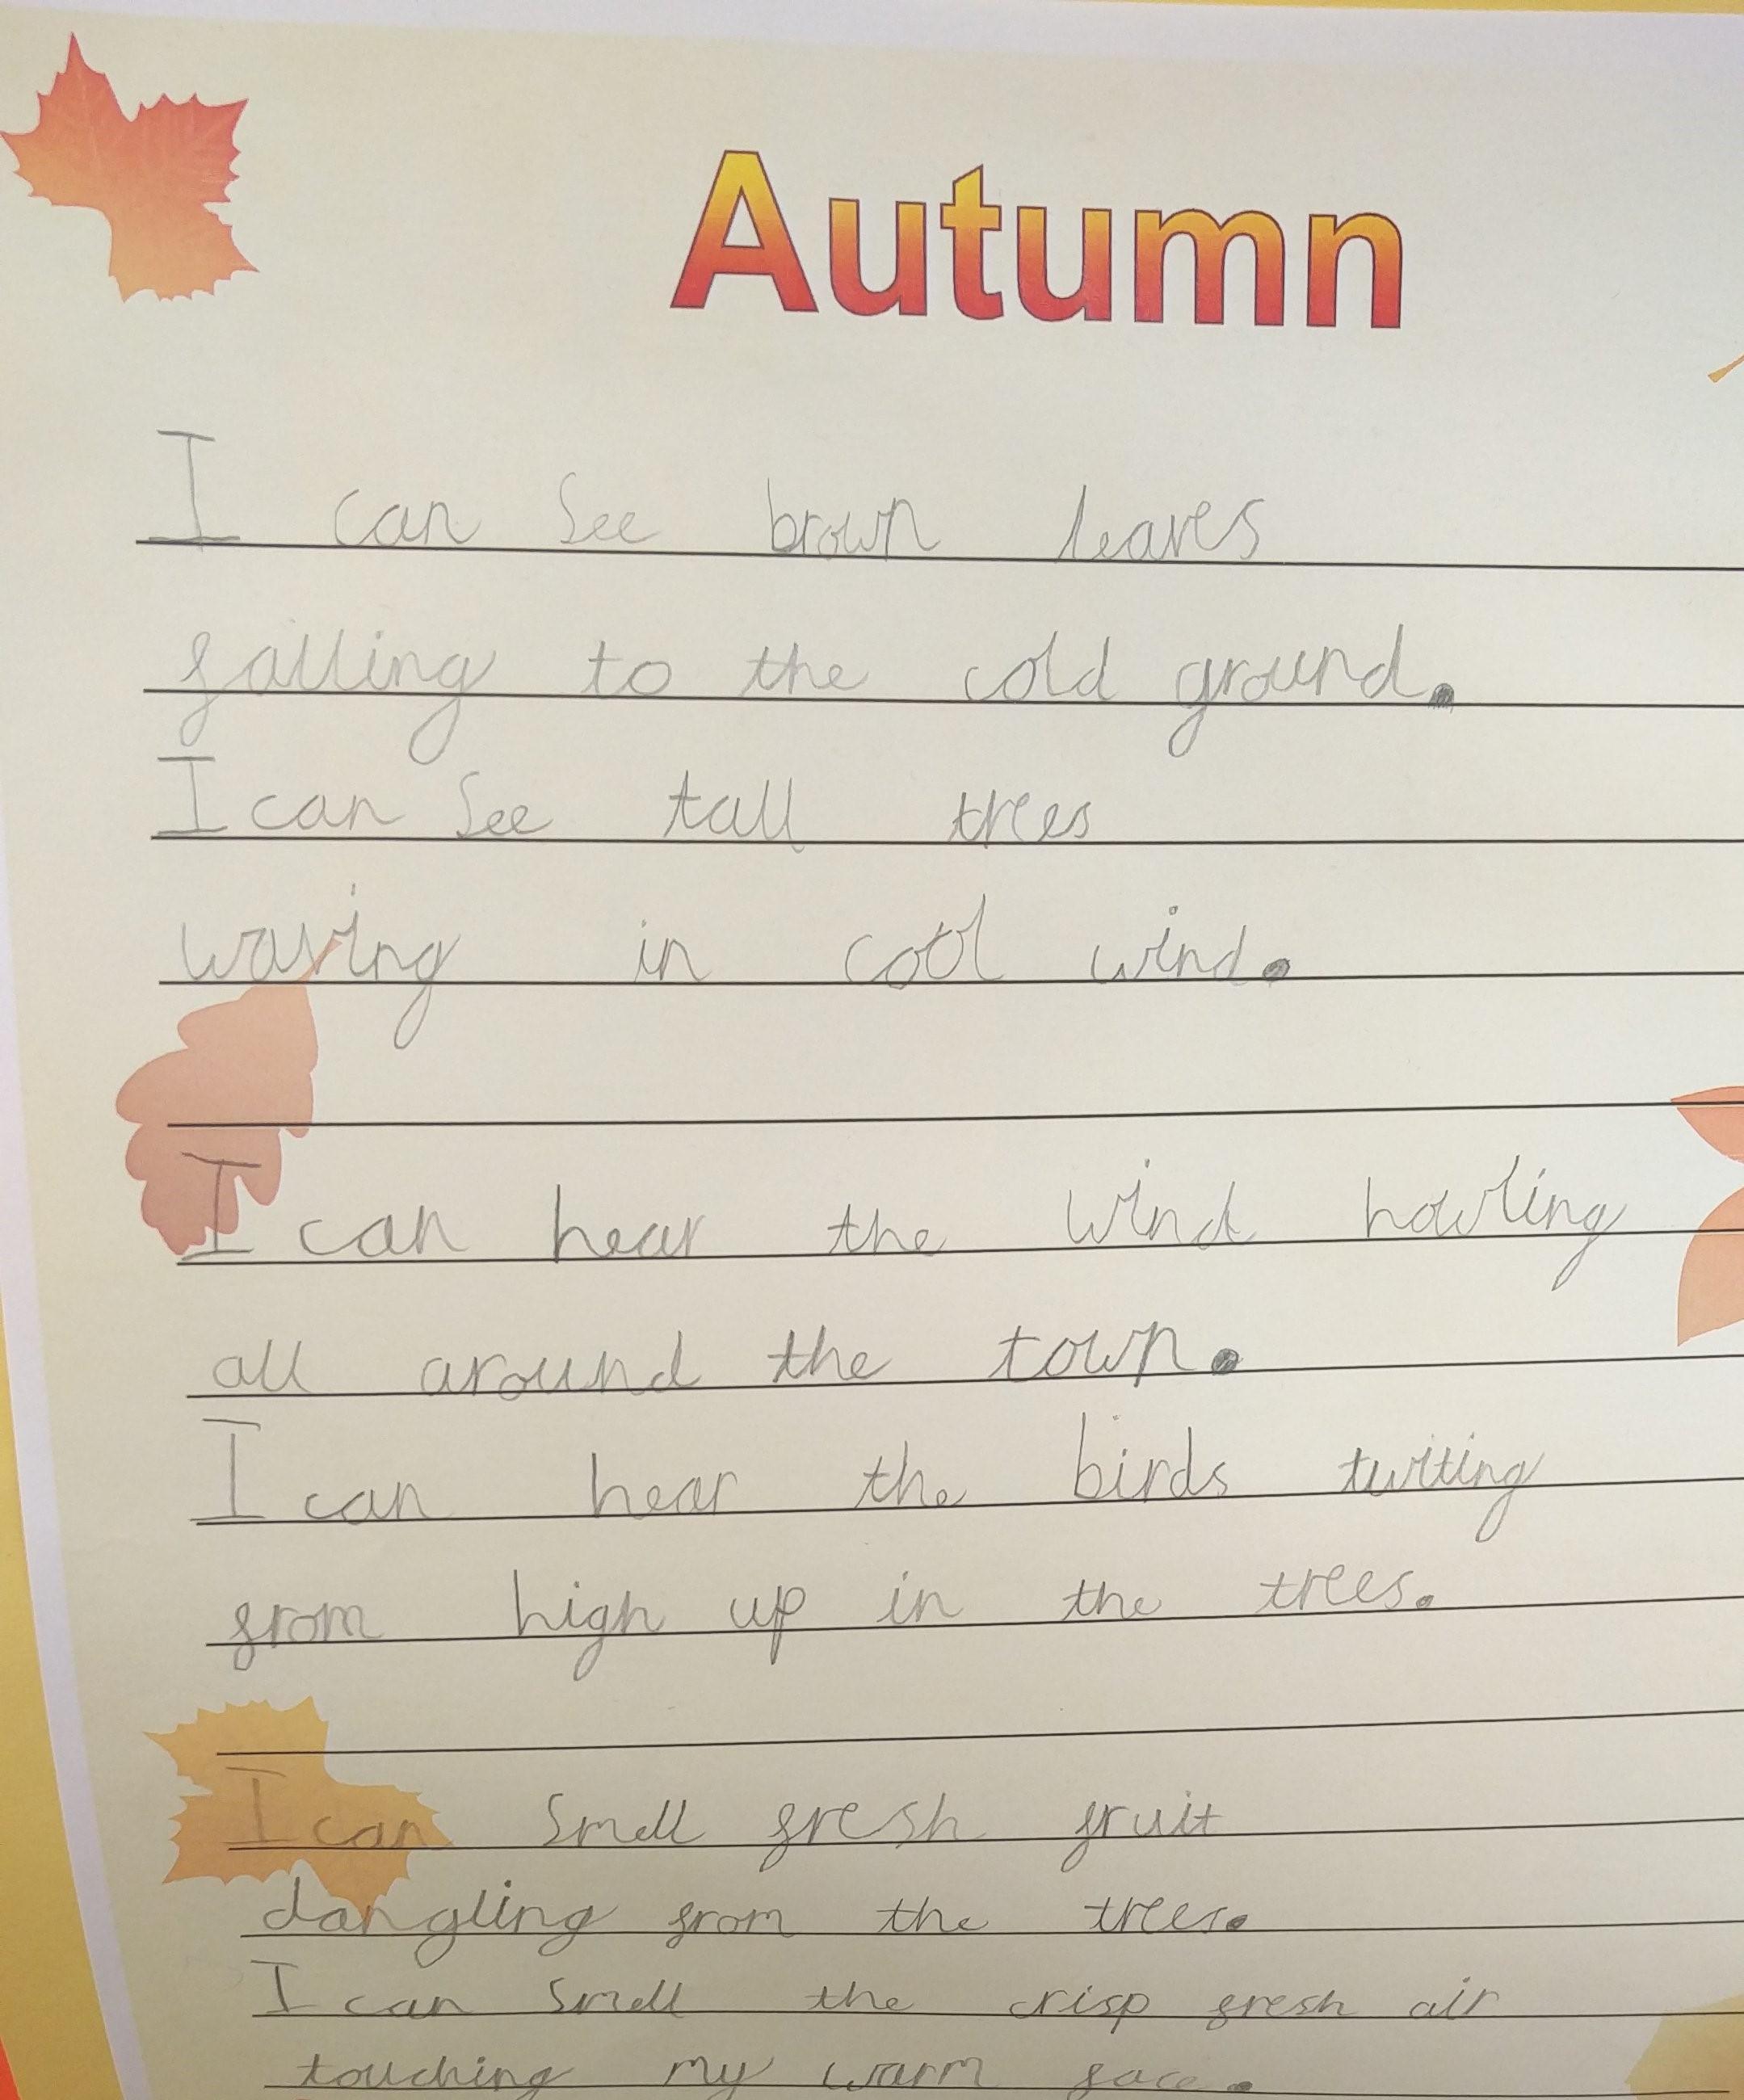 Autumn
I can see brown leaves
falling to the cold ground.
I can see tall trees
waving in cool wind.
I can hear the wind howling
all around the town.
I can hear the birds twiting
from high up in the trees.
I can smell fresh fruit
dangling from the trees.
I can smell the crisp fresh air
touching my warm face.